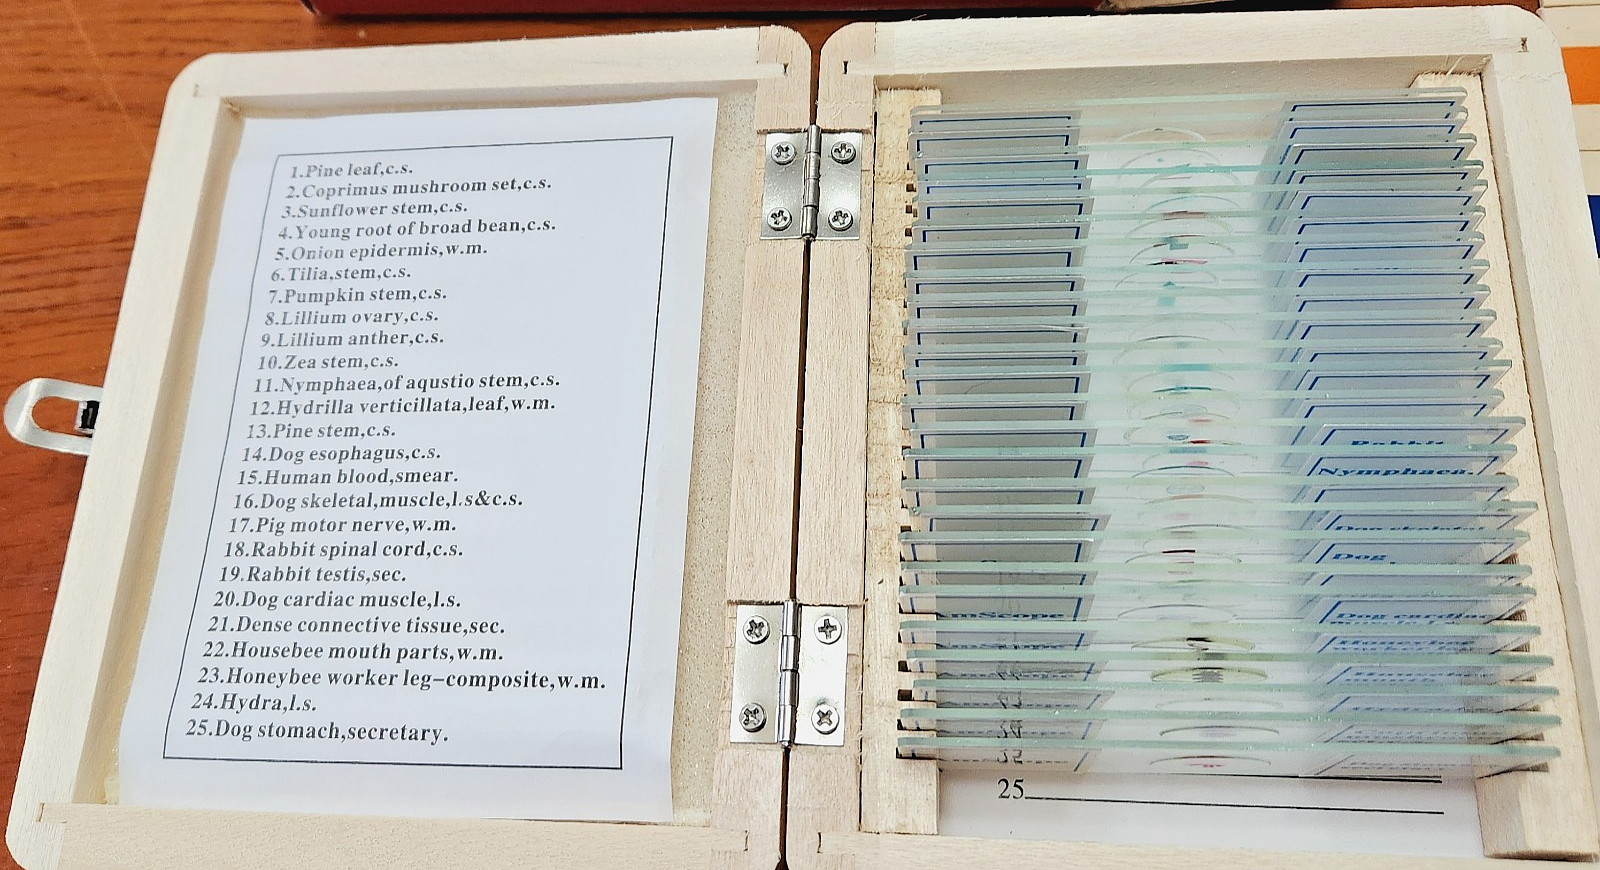 1.Pine leaf,c.s.
2.Coprimus mushroom set,c.s.
3.Sunflower stem,c.s.
4.Young root of broad bean,c.s.
5.Onion epidermis,w.m.
6.Tilia,stem,c.s.
7.Pumpkin stem,c.s.
8.Lillium ovary,c.s.
9.Lillium anther,c.s.
10.Zea stem,c.s.
11.Nymphaea,of aqustio stem,c.s.
12.Hydrilla verticillata,leaf,w.m.
13.Pine stem,c.s.
14.Dog esophagus,c.s.
15.Human blood,smear.
16.Dog skeletal,muscle,l.s&c.s.
17.Pig motor nerve,w.m.
18.Rabbit spinal cord,c.s.
19.Rabbit testis,sec.
20.Dog cardiac muscle,l.s.
21.Dense connective tissue,sec.
22.Housebee mouth parts,w.m.
23.Honeybee worker leg-composite,w.m.
24.Hydra,l.s.
25.Dog stomach,secretary.
Rabbit
Nymphaea.
Dog skeletal
Dog
AmScope
Dog cardiac
Honeybee
worker leg
25